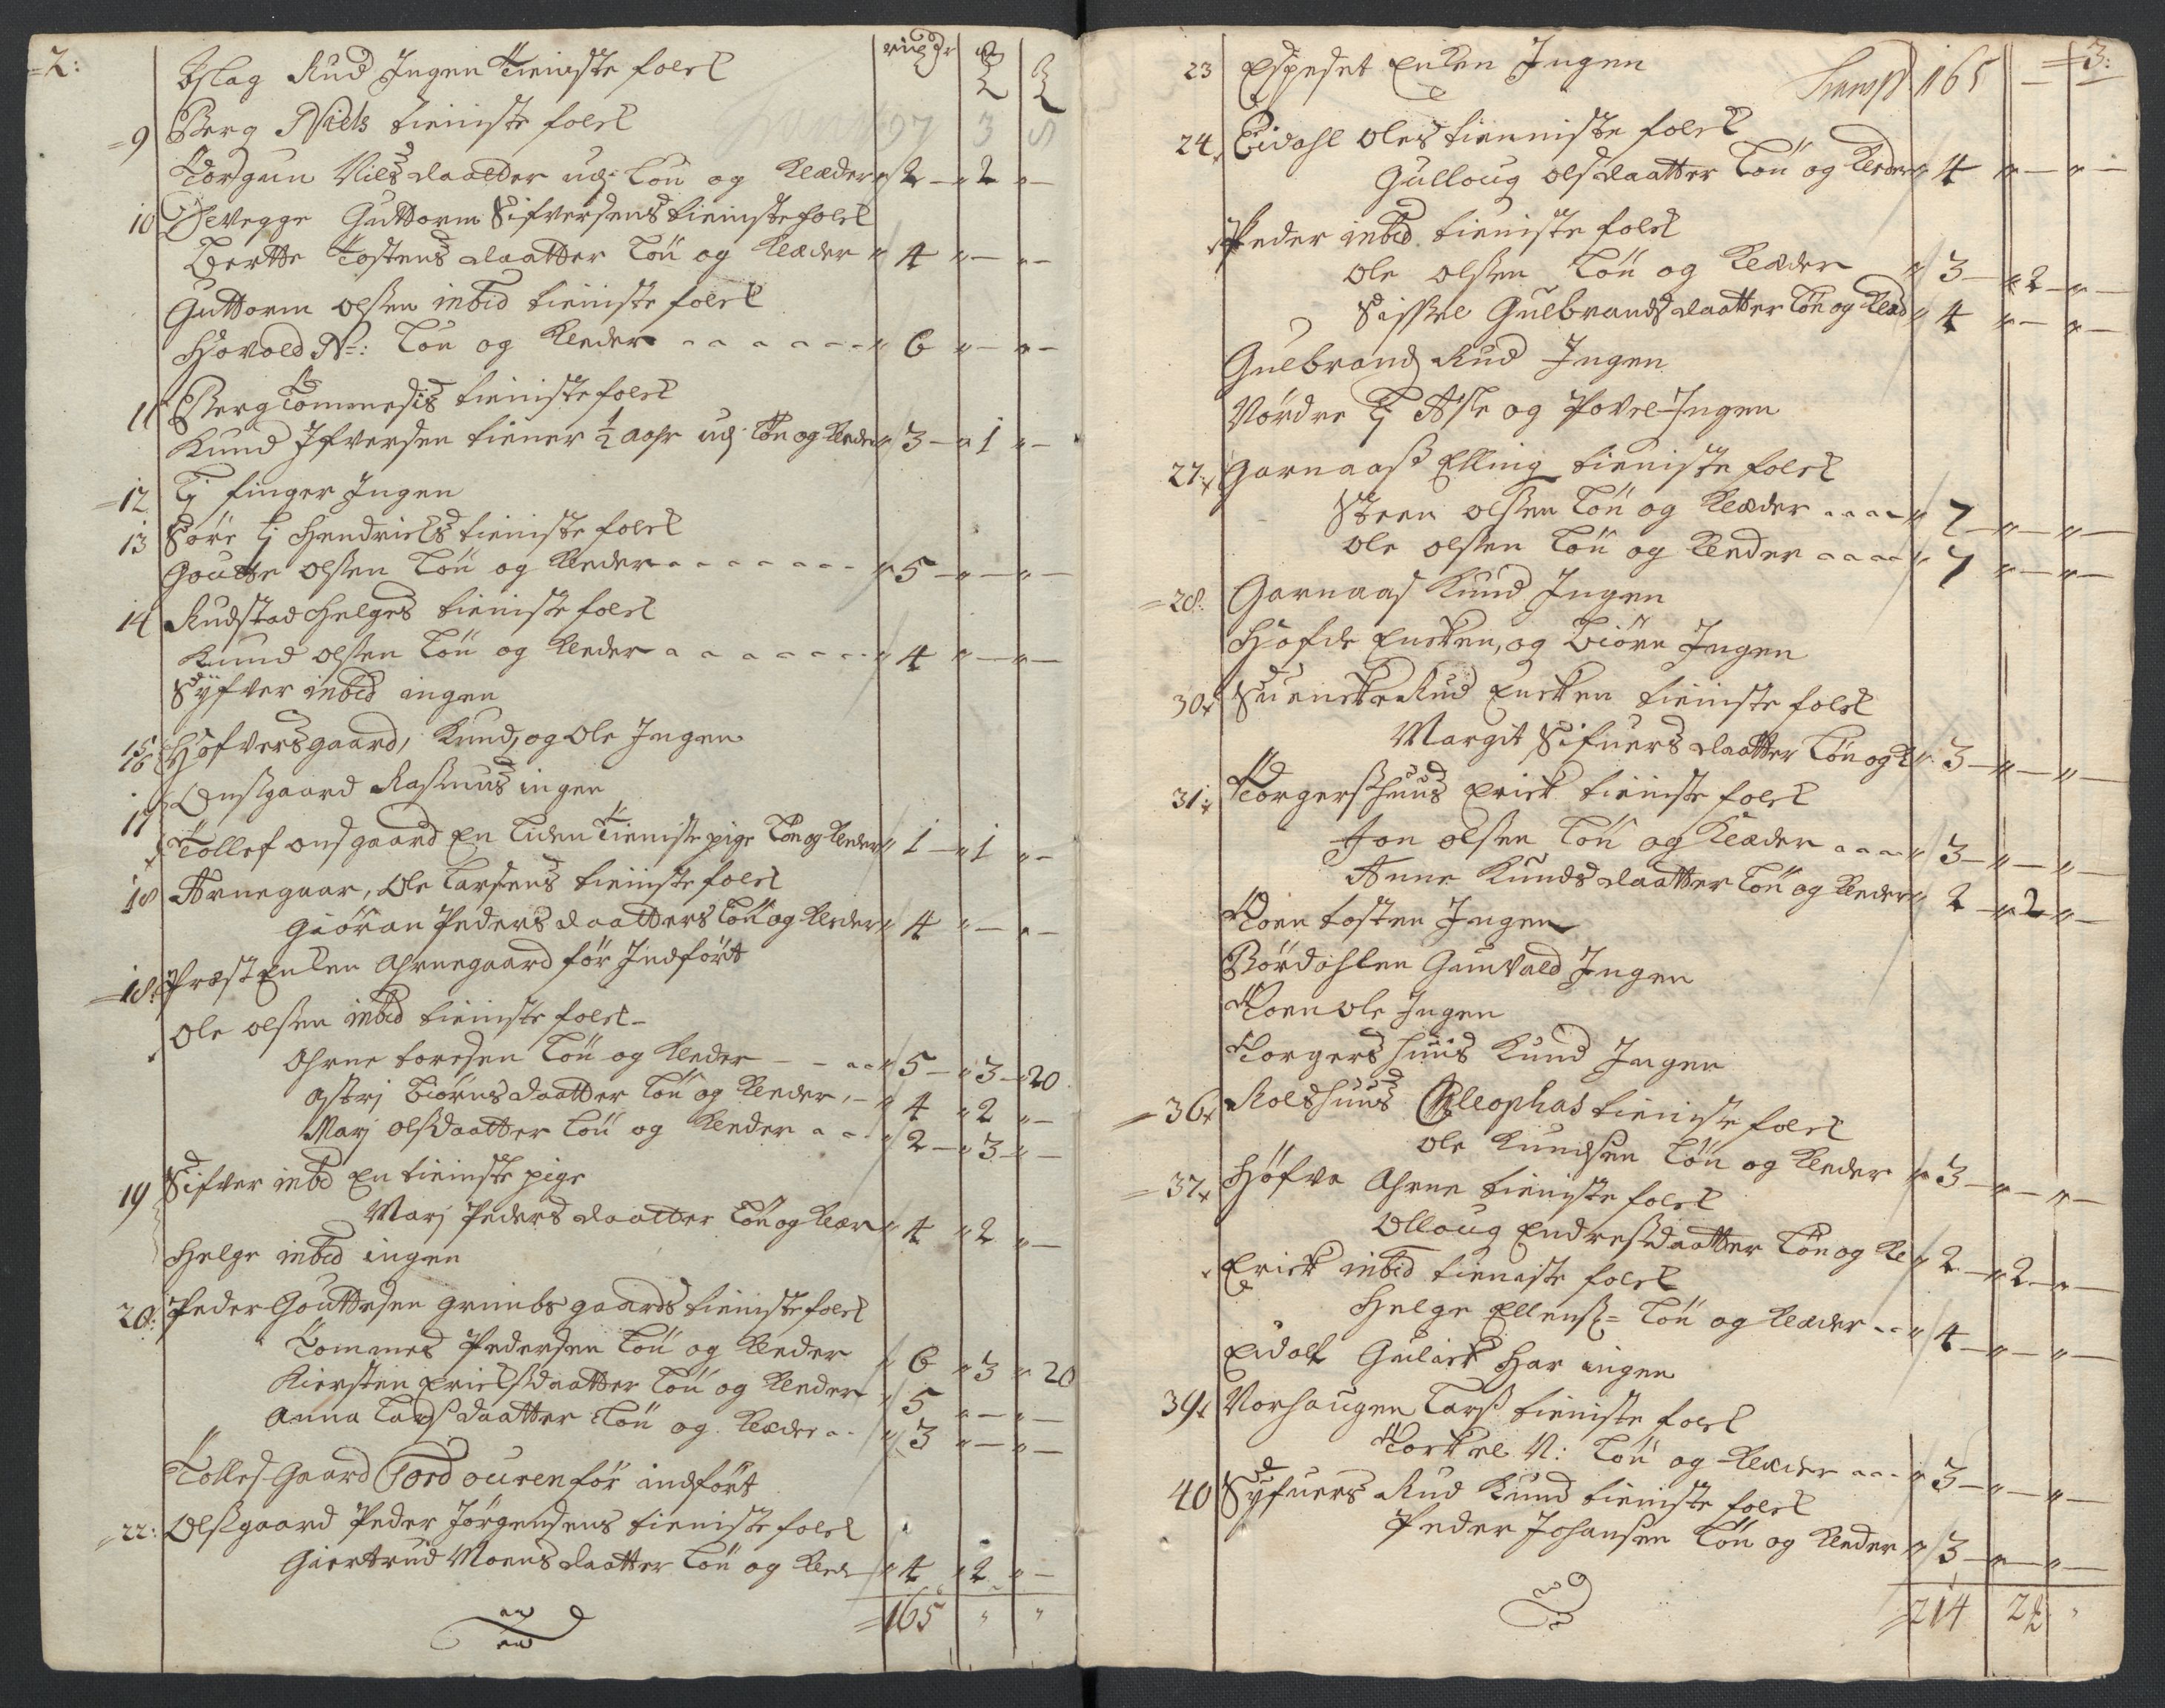 2:
Islag Rud Ingen Tieniste folck
9 Berg Niels tieniste folck 97 3 8
Torgun Nilsdaatter udj Löu og Kläder 2 - 2 -
10 Guttorm Sifversens tieniste folck
Berthe Tostens daatter Löu og Klæder 4 - -
Guttorm olsen inbid tieniste folck
Hovold N: Löu og Kleder 6 - -
11 Berg Tommesis tieniste folck
Knud Ifversen tiener ½ aahr udj Löu og Kleder 3 - 1 -
12 Lj finger Ingen
13 Söre Lj Hendrichs tieniste folck
Goutte olsen Löu og Kleder 5 - -
14 Rudstad Helges tieniste folck
Knud olsen Löu og Kleder 4 - -
Syfver inbid ingen
15 16 Hofversgaard, Knud, og Ole Ingen
17 Onsgaard Rasmus ingen
Tollef onsgaard En Liden Tieniste pige Löu og Kleder 1 - 1 -
18 Arnegaar, Ole Larsens tieniste folck
Giöran Peders daatters Löu og Kleder 4 - -
18: Præst Enken Ahrnegaard för Indfört
Ole olsen inbid tieniste folck
Ahrne toresen Löu og Kleder 5 - 3 - 20
Astrj Biörnsdaatter Löu og Kleder 4 2 -
Marj olsdaatter Löu og Kleder 2 - 3 -
19 Sifver inbd En tieniste pige
Marj Peders daatter Löu og Klæer 4 2 -
Helge inbid ingen
20: Peder Gouttesen Grimbsgaards tieniste folck
Tommes Pedersen Löu og Kleder 6 3 20
Kiersten Erichsdaatter Löu og Kleder 5 - -
Anna Larsdaatter Löu og Klæder 3 - -
Tolles Gaard Tord ouren för indfört
22: Olsgaard Peder Jörgensens tieniste folck
Giertrud Moens daatter Löu og Kled 4 2 -
165 " "
3:
23 Espeset Enken Ingen
Transp 165
24 Eidahl Oles tienniste folck
Gulloug olsdaatter Löu og Kleder 4 - -
Peder inbid tieniste folck
Ole olsen Löu og Kleder 3 - 2 -
Sissel Gulbrandsdaatter Löu og Klæd 4 - -
Gulbrand Rud Ingen
Nördre Lj Asle og Povel Ingen
27 Garnaas Elling tieniste folck
Steen olsen Löu og Klæder 7 - -
Ole olsen Löu og Kleder 7 - -
28: Garnaas Knud Ingen
Hofde Encken, og Biörn Ingen
30 Suenske Rud Encken tieniste folck
Margit Sifuers daatter Löu og K 3 - -
31 Torgershuus Erick tieniste folck
Jon olsen Löu og Klæder 3 - -
Anne Knuds daatter Löu og Kleder 2 - 2 -
Moen tosten Ingen
Bördahlen Gunvald Ingen
Moen ole Ingen
Torgershuus Knud Ingen
36 Rolshuus Cleophas tieniste folck
Ole Knudsen Löu og Kleder 3 - -
37 Höfve Ahrne tieniste folck
Olloug Endresdaatter Löu og Kle 2 - 2 -
Erick inbid tieniste folck
Helge Ellens= Löu og Klæder 4 - -
Eidahl Gulick har ingen
39 Vorhaugen Lars tieniste folck
Torkel N: Löu og Klæder 3 - -
40 Syfuers Rud Knud tieniste folck
Peder Johansen Löu og Kleder 3 - -
214 2